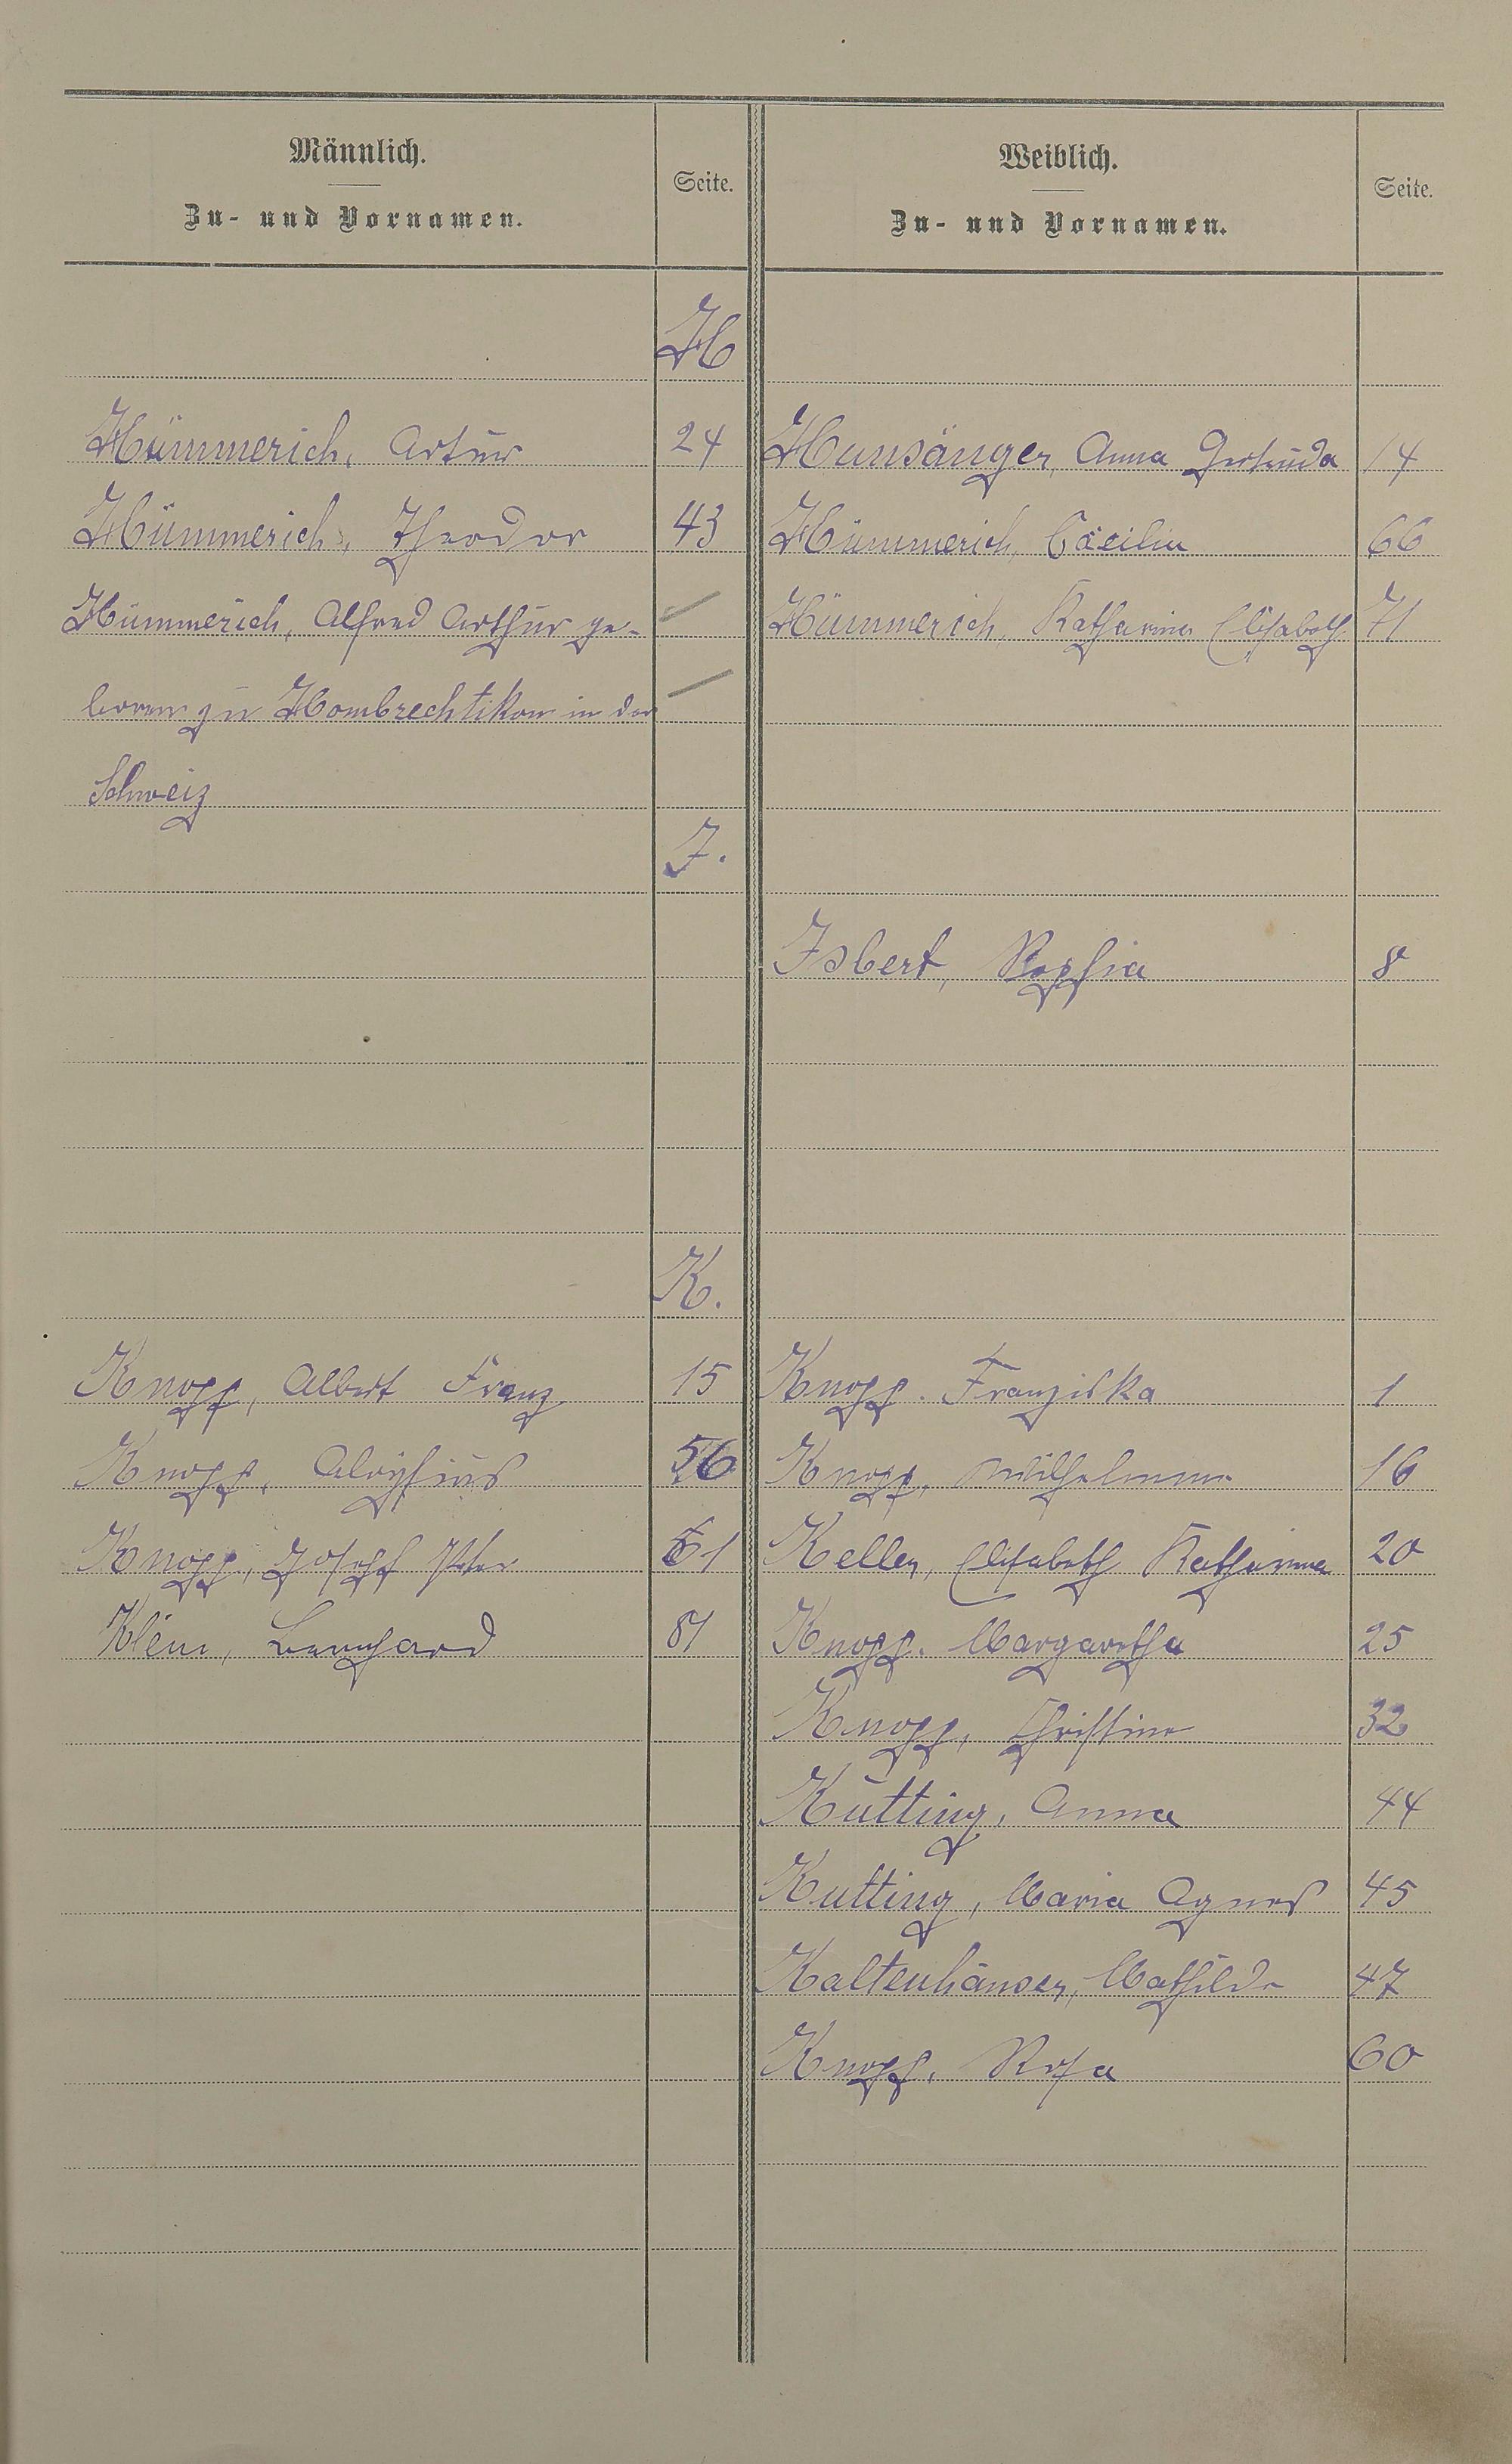 Männlich.
Zu- und Vornamen.
Seite.
Weiblich.
Zu- und Vornamen.
Seite.
H
Hümmerich, Artur 24 Hunsänger, Anna Gertruda 14
Hümmerich, Theodor 43 Hümmerich, Cäcilia 66
Hümmerich, Alfred Arthur ge- Hümmerich, Katharina Elisabeth 71
boren zu Hombrechtikon in der
Schweiz
J.
Isbert, Sophia 8
K.
Knopp, Albert Franz 15 Knopp. Franziska 1
Knopp, Aloysius 56 Knopp, Wilhelmine 16
Knopp, Joseph Peter 61 Keller, Elisabeth Katharina 20
Klein, Bernhard 81 Knopp. Margaretha 25
Knopp, Christine 32
Kutting, Anna 44
Kutting, Maria Agnes 45
Kaltenhäuser, Mathilde 47
Knopp, Rosa 60